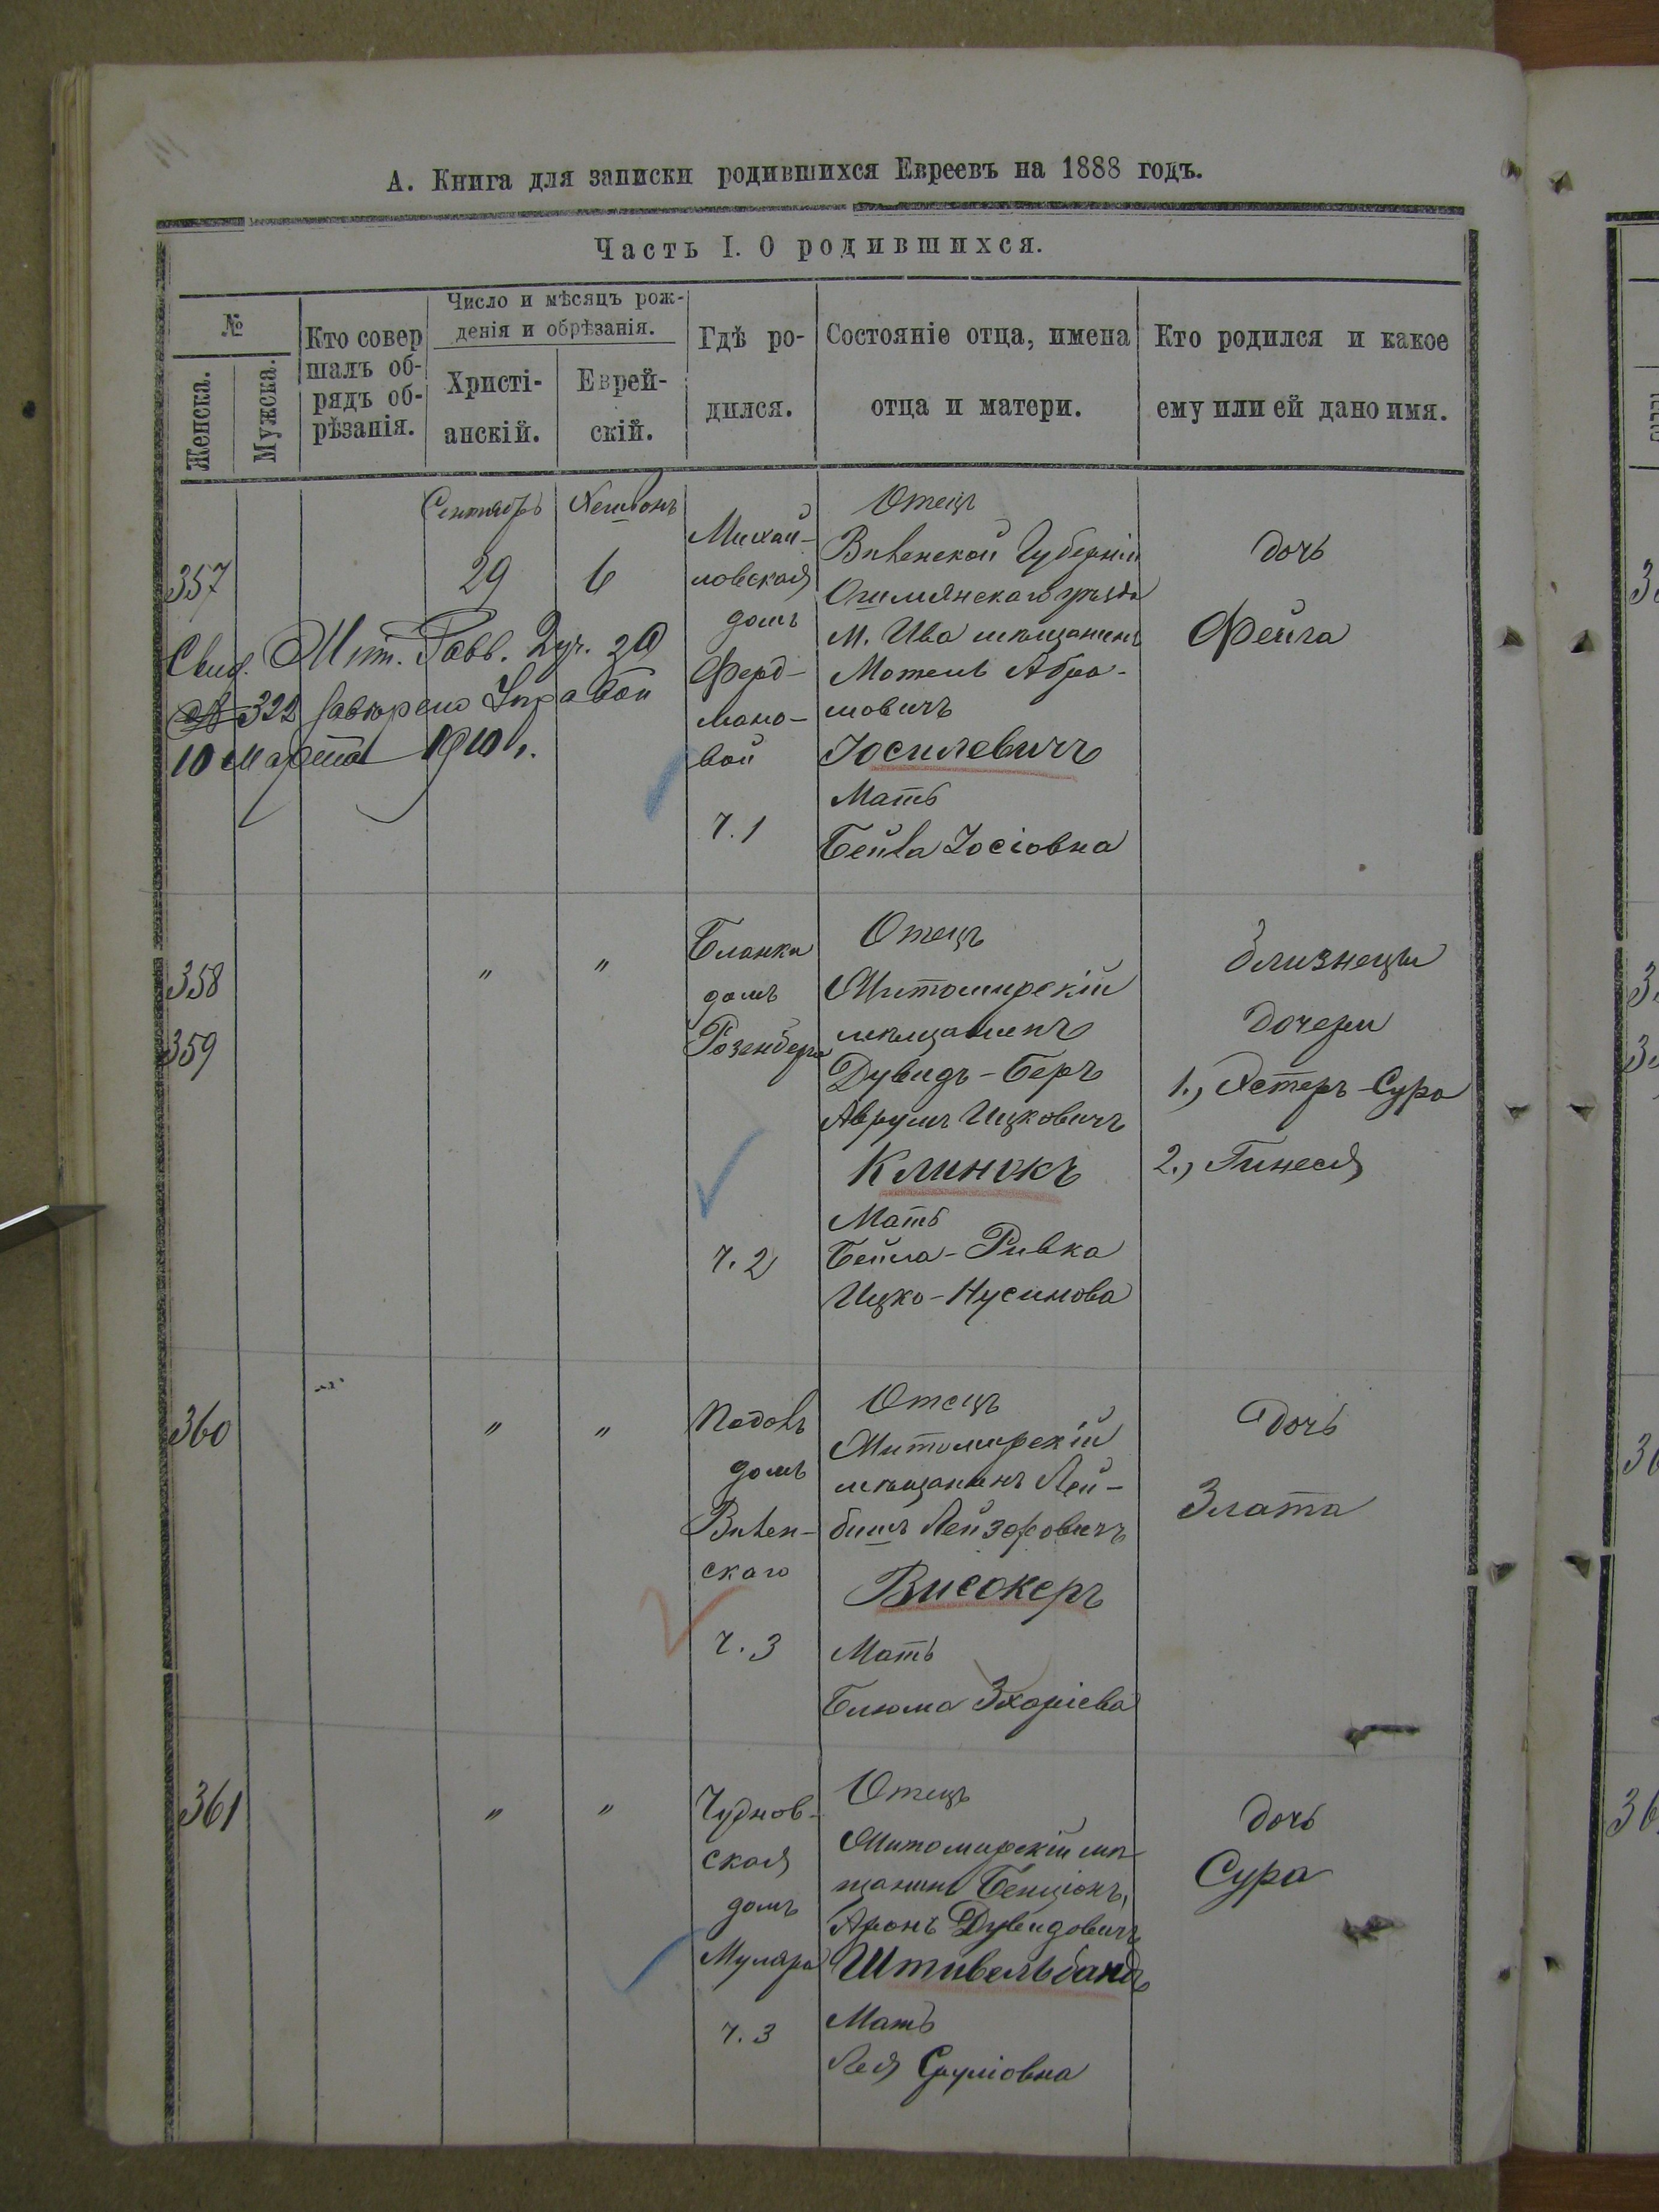 А. Книга для записки родившихся Евреевъ на 1888 годъ.
Часть I. О родившихся.
№
Женска.
Мужска.
Кто совер
шалъ об-
рядъ об-
рѣзанія.
Число и мѣсяцъ рож-
денія и обрѣзанія.
Христі-
анскій.
Еврей-
скій.
Гдѣ ро-
дился.
Состояніе отца, имена
отца и матери.
Кто родился и какое
ему или ей дано имя.
357
Свид.
322
10 Марта 1910 г.
Сентябрь
29
Хешвонъ
6
Михай-
ловская
домъ
Ферд-
мано-
вой
ч. 1
Отецъ
Виленской Губерніи
Ошмянскаго уѣзда
М. Ива мѣщанинъ
Мотель Абра-
мовичъ
Іосилевичъ
Мать
Бейла Іосіовна
дочь
Фейга
358
359
"
"
Бланки
домъ
Розенберга
ч. 2
Отецъ
Житомирскій
мѣщанинъ
Дувидъ-Беръ
Аврумъ Ицковичъ
Клинокъ
Мать
Бейла-Ривка
Ицко-Нусинова
близнецы
дочери
1., Эстеръ-Сура
2., Гинеся
360
"
"
Подолъ
домъ
Вилен-
скаго
ч. 3
Отецъ
Житомирскій
мѣщанинъ Лей-
бишъ Лейзоровичъ
Високеръ
Мать
Блюма Зхаріева
дочь
Злата
361
"
"
Чуднов-
ская
домъ
Муляра
ч. 3
Отецъ
Житомирскій мѣ-
щанинъ Бенціонъ,
Аронъ Дувидовичъ
Штивельбандъ
Мать
Лея Сруліовна
дочь
Сура